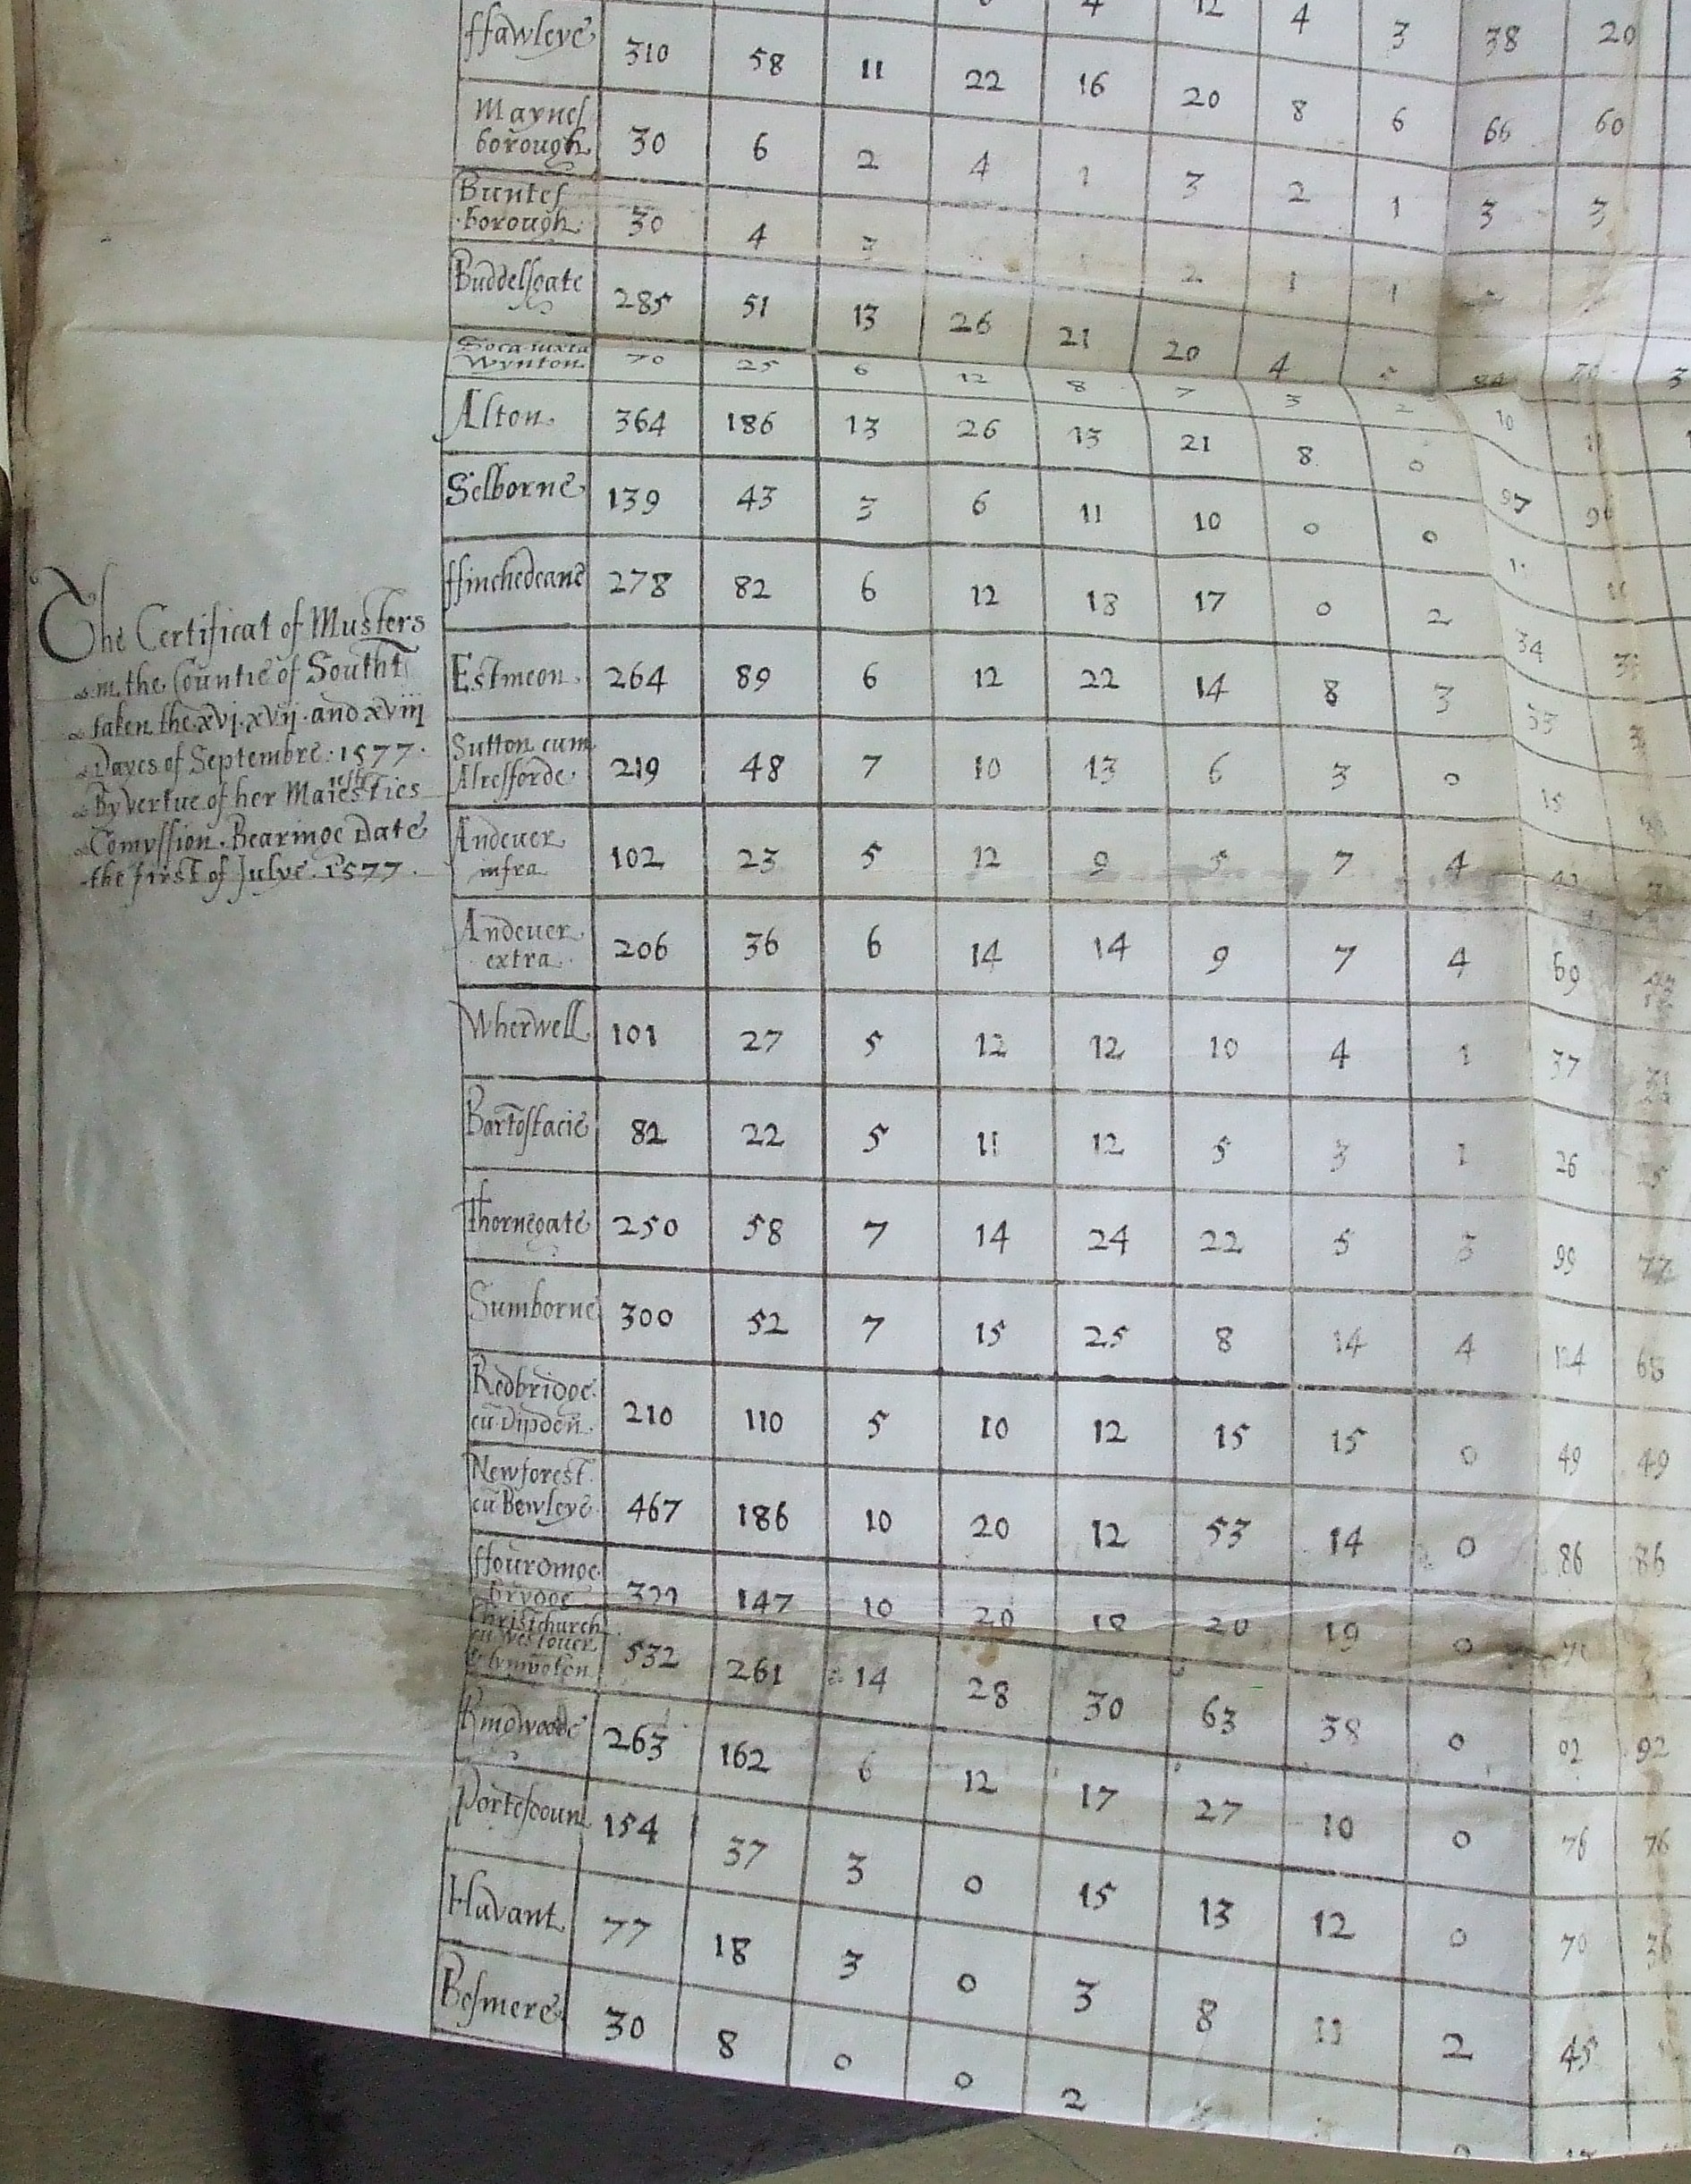 4 12 4 3 38 20
ffawleye 310 58 11 22 16 20 8 6 66 60
Maynes
borough 30 6 2 4 1 3 2 1 3 3
Buntes
borough 30 4 3 2 1 1
Buddelsgate 285 51 13 26 21 20 4 5
Soca iuxta
Wynton 70 25 6 12 8 7 3 2 10
Alton 364 186 13 26 13 21 8 0 97
Selborne 139 43 3 6 11 10 0 0
ffinchedeane 278 82 6 12 18 17 0 2 34
Estmeon 264 89 6 12 22 14 8 3 53
Sutton cum
Alresforde 219 48 7 10 13 6 3 0 15
Andeuer
infra 102 23 5 12 9 5 7 4
Andeuer
extra 206 36 6 14 14 9 7 4 69
Wherwell 101 27 5 12 12 10 4 1 37
Bartostacie 82 22 5 11 12 5 3 1 26 25
Thornegate 250 58 7 14 24 22 5 3 99 77
Sumborne 300 52 7 15 25 8 14 4 124 68
Redbridge
cu Dipden 210 110 5 10 12 15 15 0 49 49
Newforest
cu Bewleye 467 186 10 20 12 53 14 0 86 86
ffourdinge
brydge 147 10 20 18 20 19 0
Christchurch
cu Westouer
& lymington 532 261 14 28 30 63 38 0 92 92
Ringwoode 263 162 6 12 17 27 10 0 76 76
Portesdoun 154 37 3 0 15 13 12 0 70 36
Havant 77 18 3 0 3 8 11 2 45
Bosmere 30 8 0 0 2
The Certificat of Musters
in the Countie of Southt
taken the xvj. xvij. and xviij
Dayes of Septembre. 1577.
By vertue of her Maiesties
Comyssion. Bearinge Date
the first of Julye. 1577.